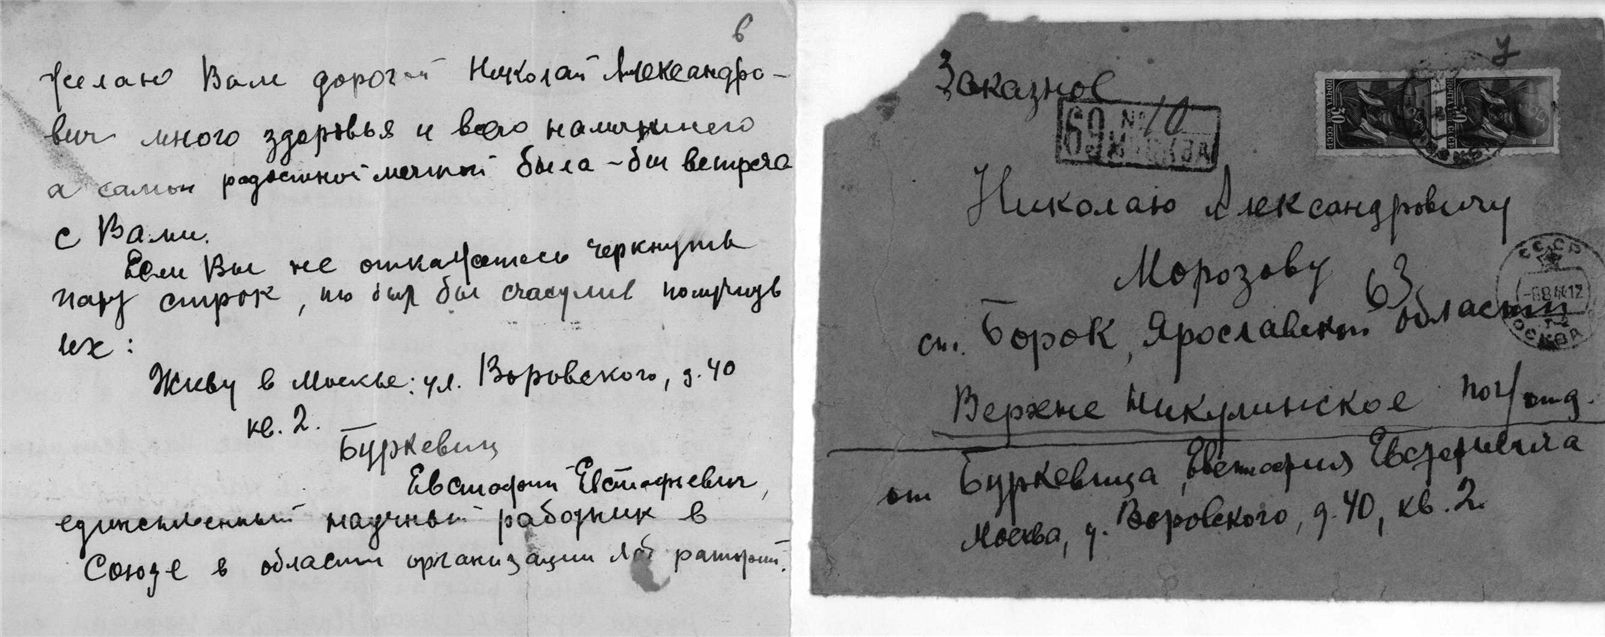 6
Желаю Вам дорогой Николай Александро-
вич много здоровья и всего наилучшего
а самой радостной мечтой была-бы встреча
с Вами.
Если Вы не откажетесь черкнуть
пару строк, то был бы счастлив получить
их:
Живу в Москве: ул. Воровского, д. 40
кв. 2.
Буркевиц
Евстафий Евстафиевич,
единственный научный работник в
Союзе в области организации лабораторий.
Заказное
69 № 10
МОСКВА
ПОЧТА СССР 50
ПОЧТА СССР 50
Николаю Александровичу
Морозову
63
ст. Борок, Ярославской области
СССР
МОСКВА
Верхне Никулинское поч/отд.
от Буркевица, Евстафия Евстафиевича
Москва, у. Воровского, д. 40, кв. 2.